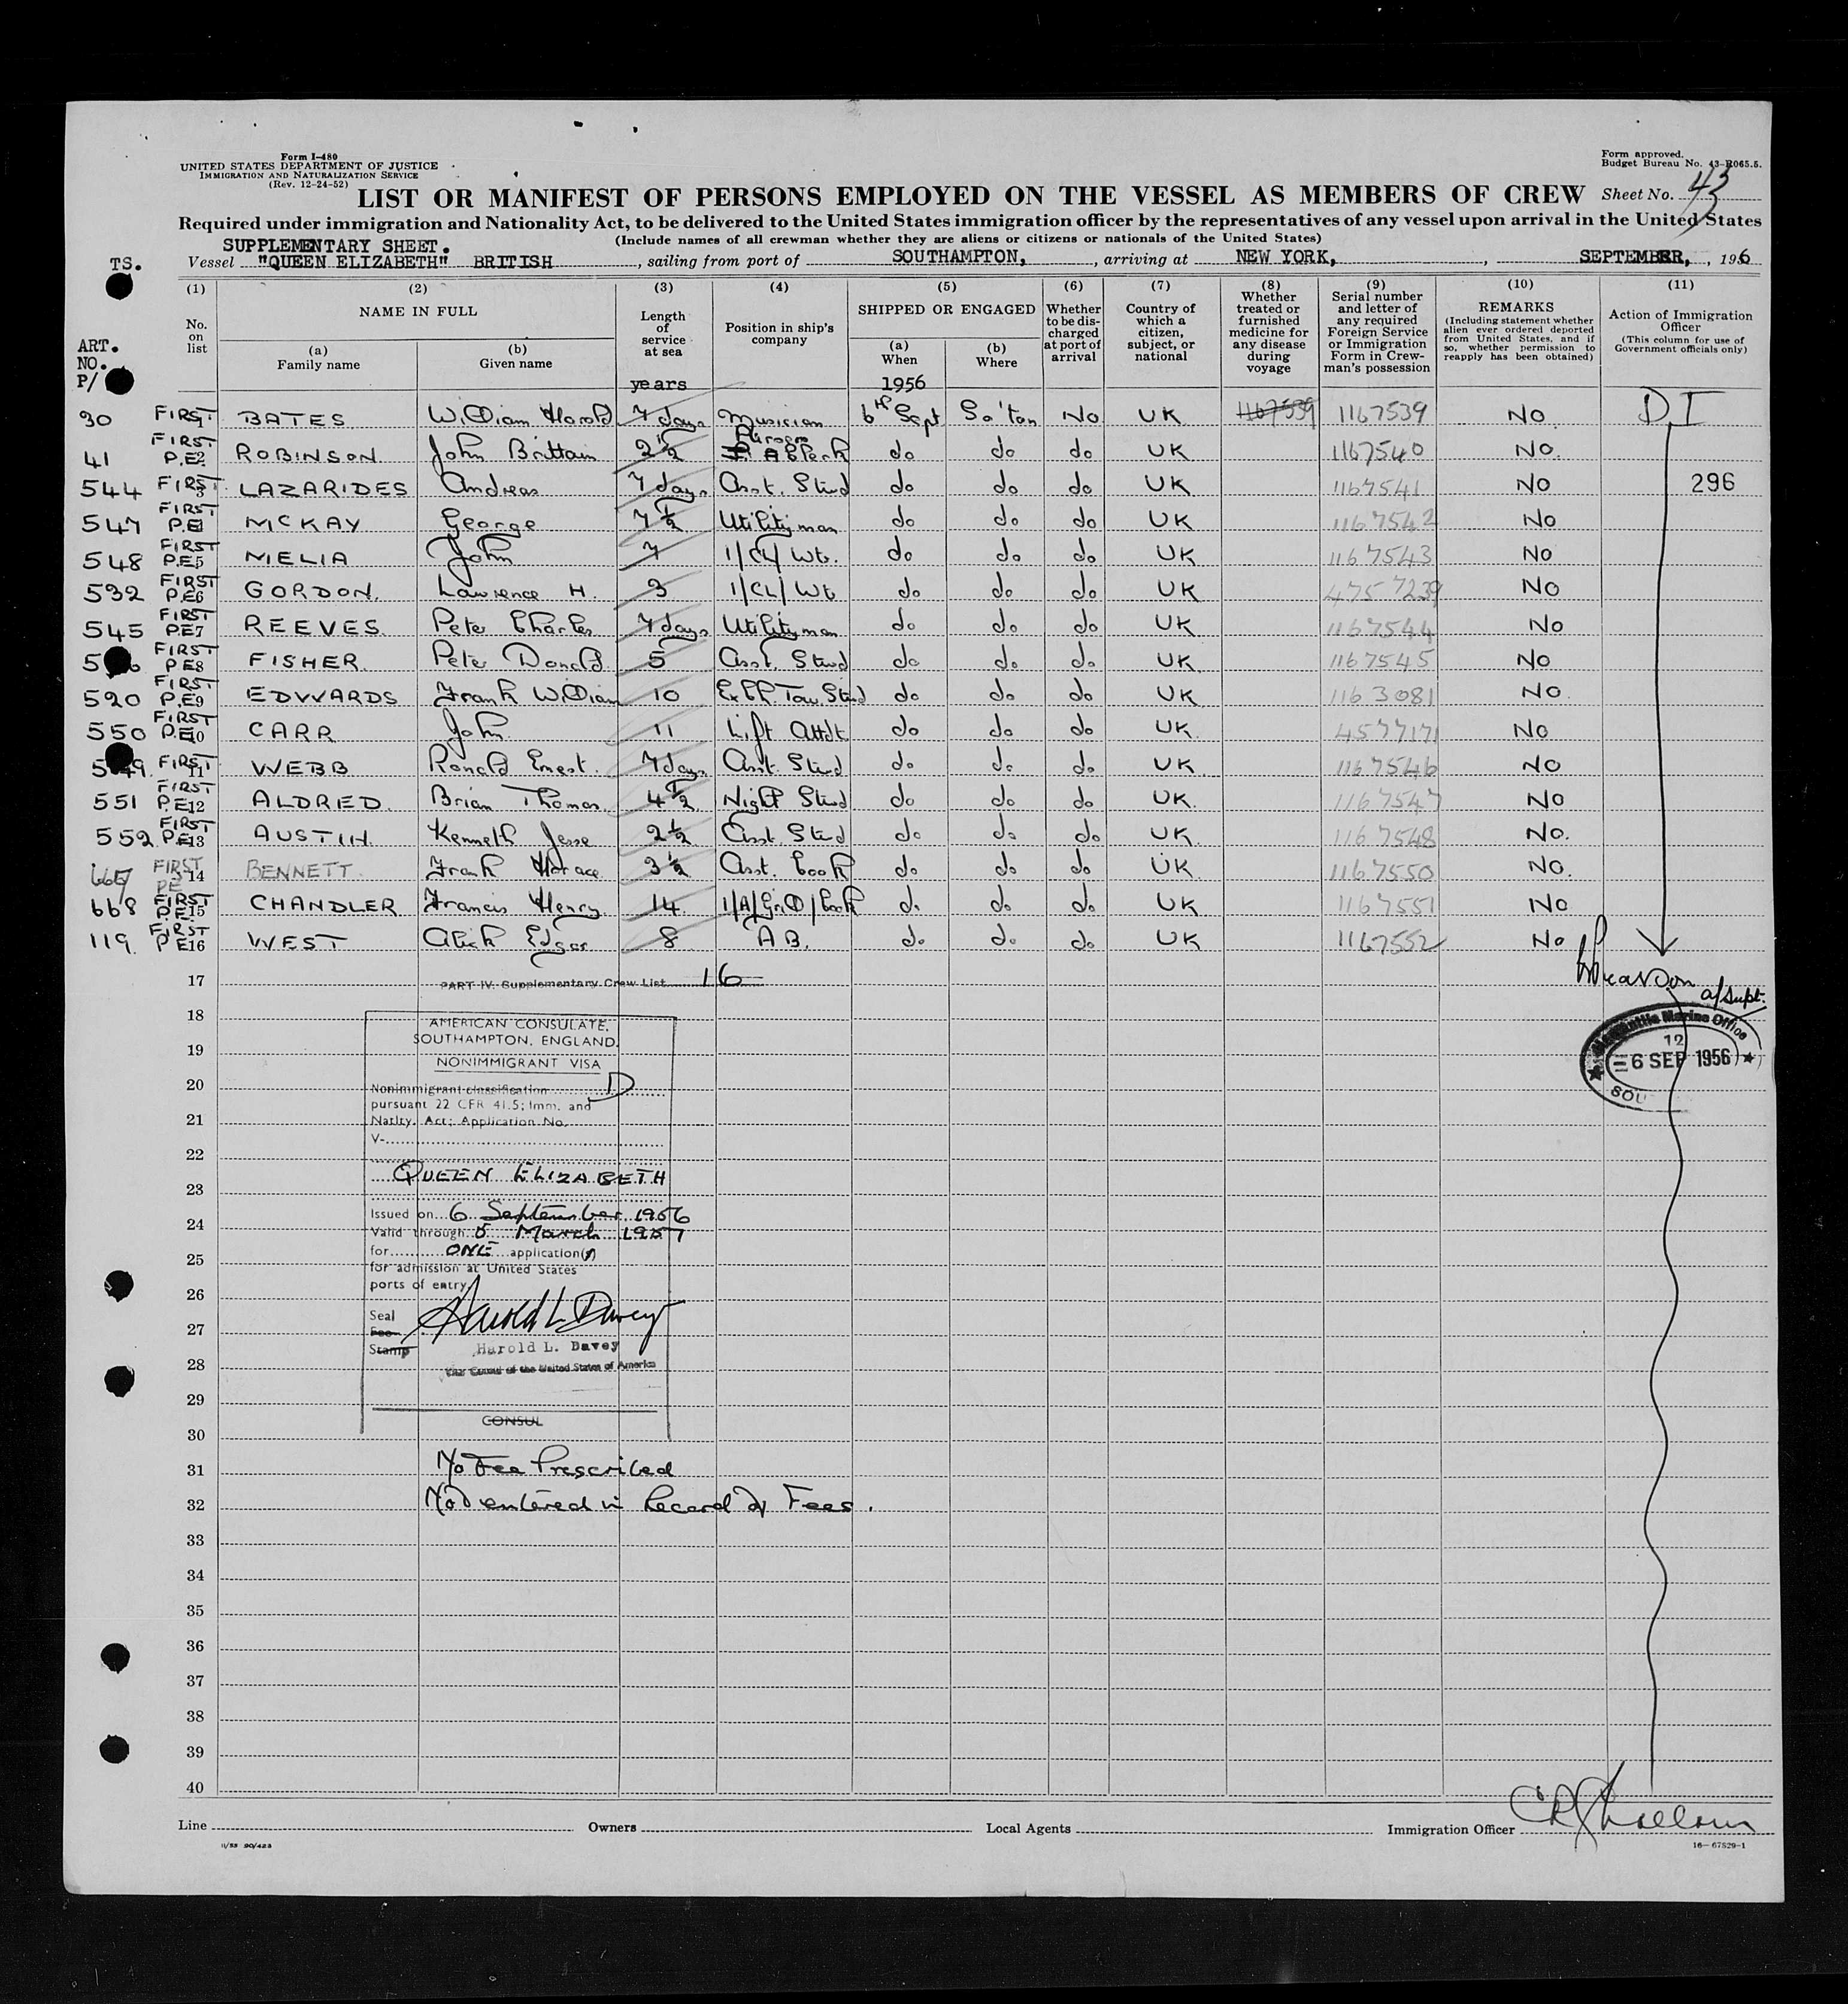 Form I-480
UNITED STATES DEPARTMENT OF JUSTICE
IMMIGRATION AND NATURALIZATION SERVICE
(Rev. 12-24-52)
Form approved.
Budget Bureau No. 43-R065.5.
LIST OR MANIFEST OF PERSONS EMPLOYED ON THE VESSEL AS MEMBERS OF CREW
Sheet No. 43
Required under immigration and Nationality Act, to be delivered to the United States immigration officer by the representatives of any vessel upon arrival in the United States
SUPPLEMENTARY SHEET.
(Include names of all crewman whether they are aliens or citizens or nationals of the United States)
TS.
Vessel "QUEEN ELIZABETH" BRITISH, sailing from port of SOUTHAMPTON, , arriving at NEW YORK, , SEPTEMBER, , 1956
ART. NO. P/
(1) No. on list
(2) NAME IN FULL
(a) Family name
(b) Given name
(3) Length of service at sea
years
(4) Position in ship's company
(5) SHIPPED OR ENGAGED
(a) When
1956
(b) Where
(6) Whether to be discharged at port of arrival
(7) Country of which a citizen, subject, or national
(8) Whether treated or furnished medicine for any disease during voyage
(9) Serial number and letter of any required Foreign Service or Immigration Form in Crewman's possession
(10) REMARKS (Including statement whether alien ever ordered deported from United States, and if so, whether permission to reapply has been obtained)
(11) Action of Immigration Officer (This column for use of Government officials only)
30 FIRST 1 BATES William Harold 7 days Musician 6th Sept So'ton No UK 1167539 1167539 No D I
41 FIRST P.E 2 ROBINSON John Brittain 2½ Pursers Clerk do do do UK 1167540 No.
544 FIRST 3 LAZARIDES Andreas 7 days Asst. Stwd do do do UK 1167541 No 296
547 FIRST P.E MCKAY George 7½ Utilityman do do do UK 1167542 No
548 FIRST P.E 5 MELIA John 7 1/CL/Wtr. do do do UK 1167543 No
532 FIRST P.E 6 GORDON. Lawrence H. 3 1/CL/Wtr do do do UK 4757239 No
545 FIRST P.E 7 REEVES Peter Charles 7 days Utilityman do do do UK 1167544 No
FIRST P.E 8 FISHER. Peter Donald 5 Asst. Stwd do do do UK 1167545 No
520 FIRST P.E 9 EDWARDS Frank William 10 do do do UK 1163081 No.
550 FIRST P.E 10 CARR John 11 Lift Attdt do do do UK 4577171 No
549. FIRST 11 WEBB Ronald Ernest. 7 days Asst. Stwd do do do UK 1167546 No
551 FIRST P.E 12 ALDRED. Brian Thomas 4½ Night Stwd do do do UK 1167547 No
552 FIRST P.E 13 AUSTIN. Kenneth Jesse 2½ Asst. Stwd do do do UK 1167548 No.
667 FIRST P.E 14 BENNETT Frank Horace 3½ Asst. Cook do do do UK 1167550 No.
668 FIRST P.E 15 CHANDLER Francis Henry 14 1/A/Grill/Cook do do do UK 1167551 No
119 FIRST P E 16 WEST Alick Edgar 8 A B. do do do UK 1167552 No
17 PART IV. Supplementary Crew List 16
a/Supt.
18
19
20
21
22
23
24
25
26
27
28
29
30
31
32
33
34
35
36
37
38
39
40
AMERICAN CONSULATE,
SOUTHAMPTON, ENGLAND.
NONIMMIGRANT VISA
Nonimmigrant classification D
pursuant 22 CFR 41.5; Imm. and
Natlty. Act; Application No.
V-
QUEEN ELIZABETH
Issued on 6 September 1956
Valid through 5 March 1957
for ONE application(s)
for admission at United States
ports of entry.
Seal
Fee
Stamp
Harold L Davey
Harold L. Davey
Vice Consul of the United States of America
CONSUL
Mercantile Marine Office
12
6 SEP 1956
SOU
No Fee Prescribed
Not entered in Record of Fees.
Line
Owners
Local Agents
Immigration Officer
11/55 90/423
16—67529-1